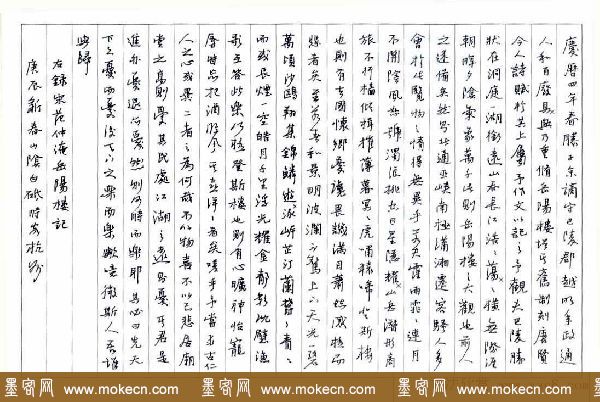 慶曆四年春滕子京謫守巴陵郡越明年政通
人和百廢具興乃重修岳陽樓增其舊制刻唐賢
今人詩賦於其上屬予作文以記之予觀夫巴陵勝
狀在洞庭一湖銜遠山吞長江浩々蕩々橫無際涯
朝暉夕陰氣象萬千此則岳陽樓之大觀也前人
之述備矣然則北通巫峽南極瀟湘遷客騷人多
會於此覽物之情得無異乎若夫霪雨霏々連月
不開陰風怒號濁浪排空日星隱耀山岳潛形商
旅不行檣傾楫摧薄暮冥々虎嘯猿啼登斯樓
也則有去國懷鄉憂讒畏譏滿目蕭然感極而
悲者矣至若春和景明波瀾不驚上下天光一碧
萬頃沙鷗翔集錦鱗游泳岸芷汀蘭鬱々青々
而或長煙一空皓月千里浮光耀金靜影沉璧漁
歌互答此樂何極登斯樓也則有心曠神怡寵
辱皆忘把酒臨風其喜洋々者矣嗟夫予嘗求古仁
人之心或異二者之為何哉不以物喜不以己悲居廟
堂之高則憂其民處江湖之遠則憂其君是
進亦憂退亦憂然則何時而樂耶其必曰先天
下之憂而憂後天下之樂而樂歟噫微斯人吾誰
與歸
右錄宋范仲淹岳陽樓記
庚辰新春山陰白砥時客杭州
墨客网 www.mokecn.com 墨客网 www.mokecn.com 墨客网 www.mokecn.com